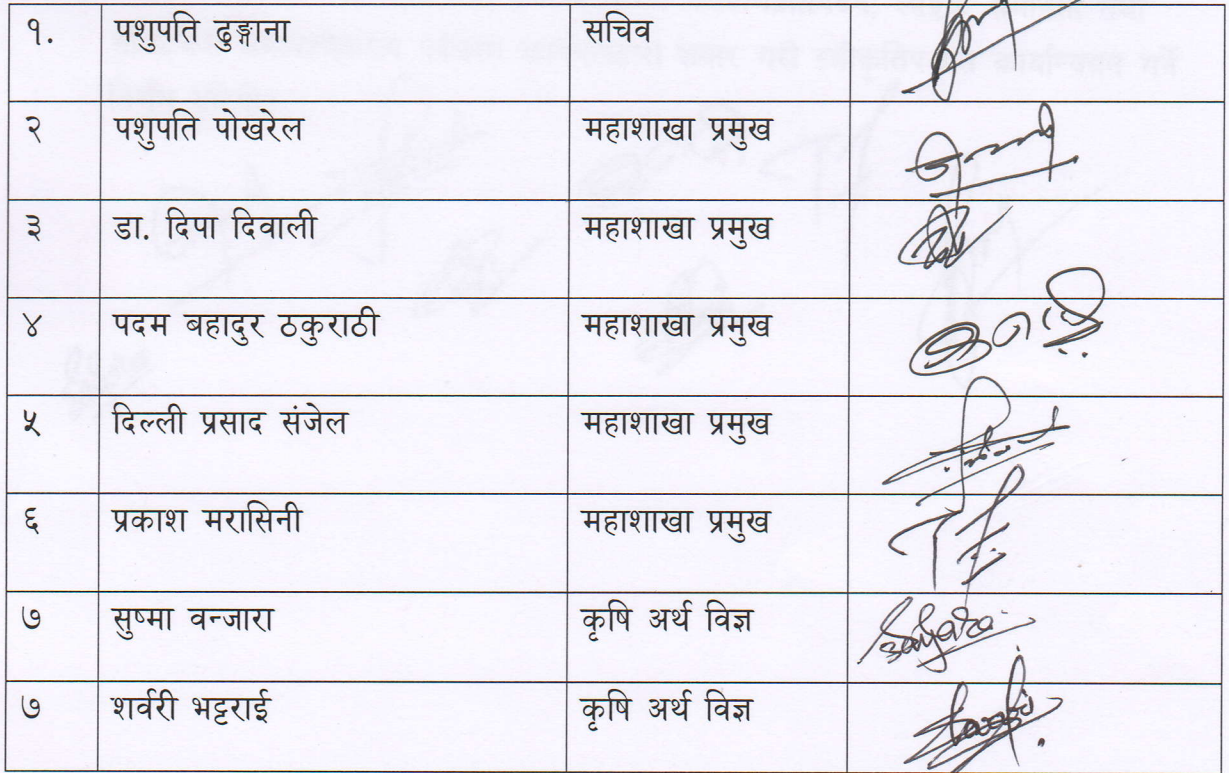 १. पशुपति ढुङ्गाना सचिव
२ पशुपति पोखरेल महाशाखा प्रमुख
३ डा. दिपा दिवाली महाशाखा प्रमुख
४ पदम बहादुर ठकुराठी महाशाखा प्रमुख
५ दिल्ली प्रसाद संजेल महाशाखा प्रमुख
६ प्रकाश मरासिनी महाशाखा प्रमुख
७ सुष्मा वन्जारा कृषि अर्थ विज्ञ
७ शर्वरी भट्टराई कृषि अर्थ विज्ञ